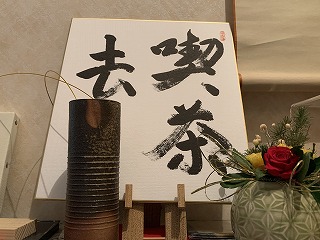 喫茶
去